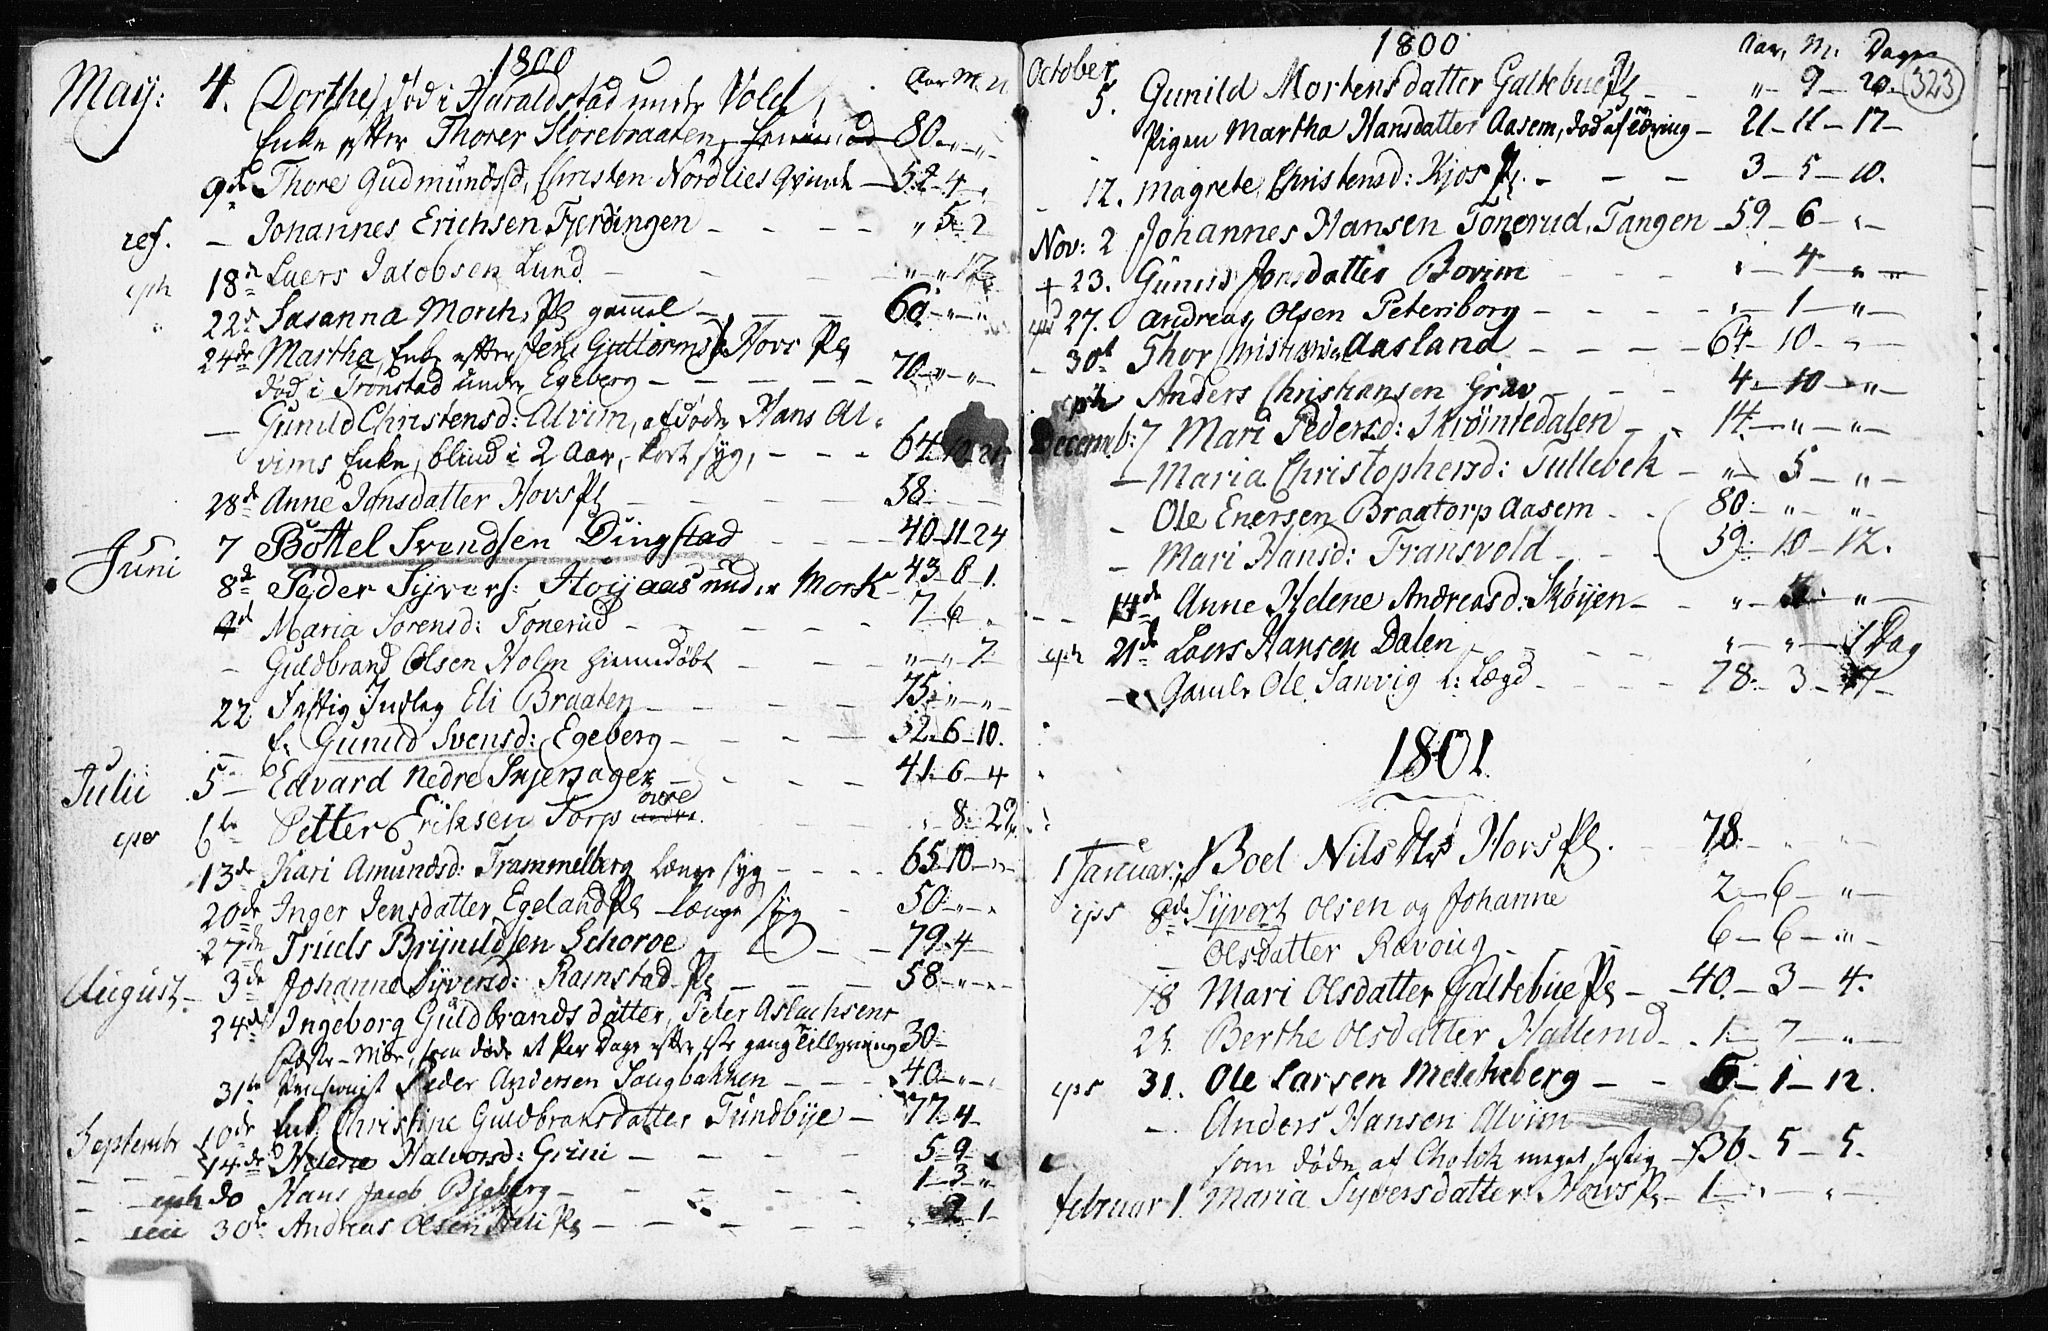 1800
Aar M. U
May: 4. Dorthe, død i Haraldstad under Vold,
Enke efter Thorer Storebraaten, 80 - " - "
9de Thore Gudmundsd, Christen Nordlies qvinde - 52 - 4 -
ref. - Johannes Erichsen Fjerdingen - - - - " 5 - 2
cph 18de Laers Jacobsen Lund - - - " " 12
22de Sasanna Monch, Pl gammel - - - 60 - " - "
24de Martha, Enke efter Jens Guttormsd Hovs Pl
død i Tronstad under Egeberg - - - - - 70 - " - "
- Gunild Christensd: Alvim, afdøde Hans Al-
vims Enke, blind i 2 Aar, kort syg, - - - 64
28de Anne Jonsdatter Hovs Pl - - - - 58 - - -
Juni 7 Bottel Svendsen Dingstad - - - - 40 - 11 - 24
8de Peder Syvers: Hoyaas under Mork - 43 - 8 - 1.
9d Maria Sorensd: Tonerud - - - - - 7 - 6 -
- Guldbrand Olsen Holm hiemmedøbt - - - " - " - 7 -
22 Fattig Indleg Eli Braaten - - - - 75 - " - "
- f: Gunild Svensd: Egeberg - - - - 32 - 6 - 10.
Julii 5 - Edvard nedre Skjersager - - - - 41 - 6 - 4
cps 6te Petter Eriksen Torp øvre - - - " - 8 - 2
13de Kari Amundsd: Trammelberg længe syg - - - - 65 - 10 - "
20de Inger Jensdatter Egeland Pl - længe syg - 50 - " - "
27de Truels Brynildsen Schoroe - - - 79 - 4 -
August - 3de Johanne Syversd: Ramstad Pl - - - 58 - " - " -
24de Ingeborg Guldbrandsdatter, Peter Aslachsens
Fæste-Møe, som døde et Par Dage efter 1ste gang Tillysning 30 -
31te Pensionist Peder Andersen Haugbakken - - - 40 - " - "
Septembr 10de Enk. Christine Guldbransdatter Tundbye - 77 - 4 -
14de Helena Halvorsd: Grini - - - - 5 - 9 -
- - cph do Hans Jacob Bjøberg - - - - - 1 - 3 - "
- 30te Andreas Olsen Pl - - - - - " - 2 - 1 -
1800
Aar, M: Dage
323
October 5. Gunild Mortensdatter Galtebue Pl - - " - 9 - 20 -
- Pigen Martha Hansdatter Aasem, død af Tæring - 21 - 11 - 17 -
- 12. Magrete Christensd: Kjos Pl. - - - 3 - 5 - 10.
Nov: 2 Johannes Hansen Tonerud, Tangen - 59 - 6 - " -
+ 23. Gunild Jonsdatter Bovim - - - " - 4 - " - "
27. Andreas Olsen Petersborg - - - - " - 1 - " -
- 30t Thor Christiansen Aasland - - - - 64 - 10 - " -
cph Anders Christiansen Grav - - - 4 - 10 - " -
Decemb: 7 Mari Pedersd: Skrøintedalen - - 14 - " - " -
- Maria Christophersd: Tullebek - " - 5 - " -
- Ole Enersen Braatorp Aasem - - 80 - " - " -
- Mari Hansd: Fransvold - - - 59 - 10 - 12.
- - 14de Anne Helene Andreasd: Skøyen - - " - - " -
cph 21de Laers Hansen Dalen - - - - " - " - 1 Dag
- Gamle Ole Sanvig L: Lægd - - - - 78 - 3 - 17 -
1801.
1 Januar: Boel Nils Dtr Hovs Pl. - 78 - - -
cps 8de Syvert Olsen og Johanne 2 - 6 - " -
- Olsdatter Ravoug - - 6 - 6 - " -
18 Mari Olsdatter Galtebue Pl - - 40 - 3 - 4.
25. Berthe Olsdatter Hallerud - - 1 - 7 - " -
cps 31. Ole Larsen Melcheberg - - 6 - 1 - 12.
- Anders Hansen Alvim - 36
som døde af Cholik meget hastig - 36 - 5 - 5.
Februar 1. Maria Syversdatter Hovs Pl - 1 - " - " -